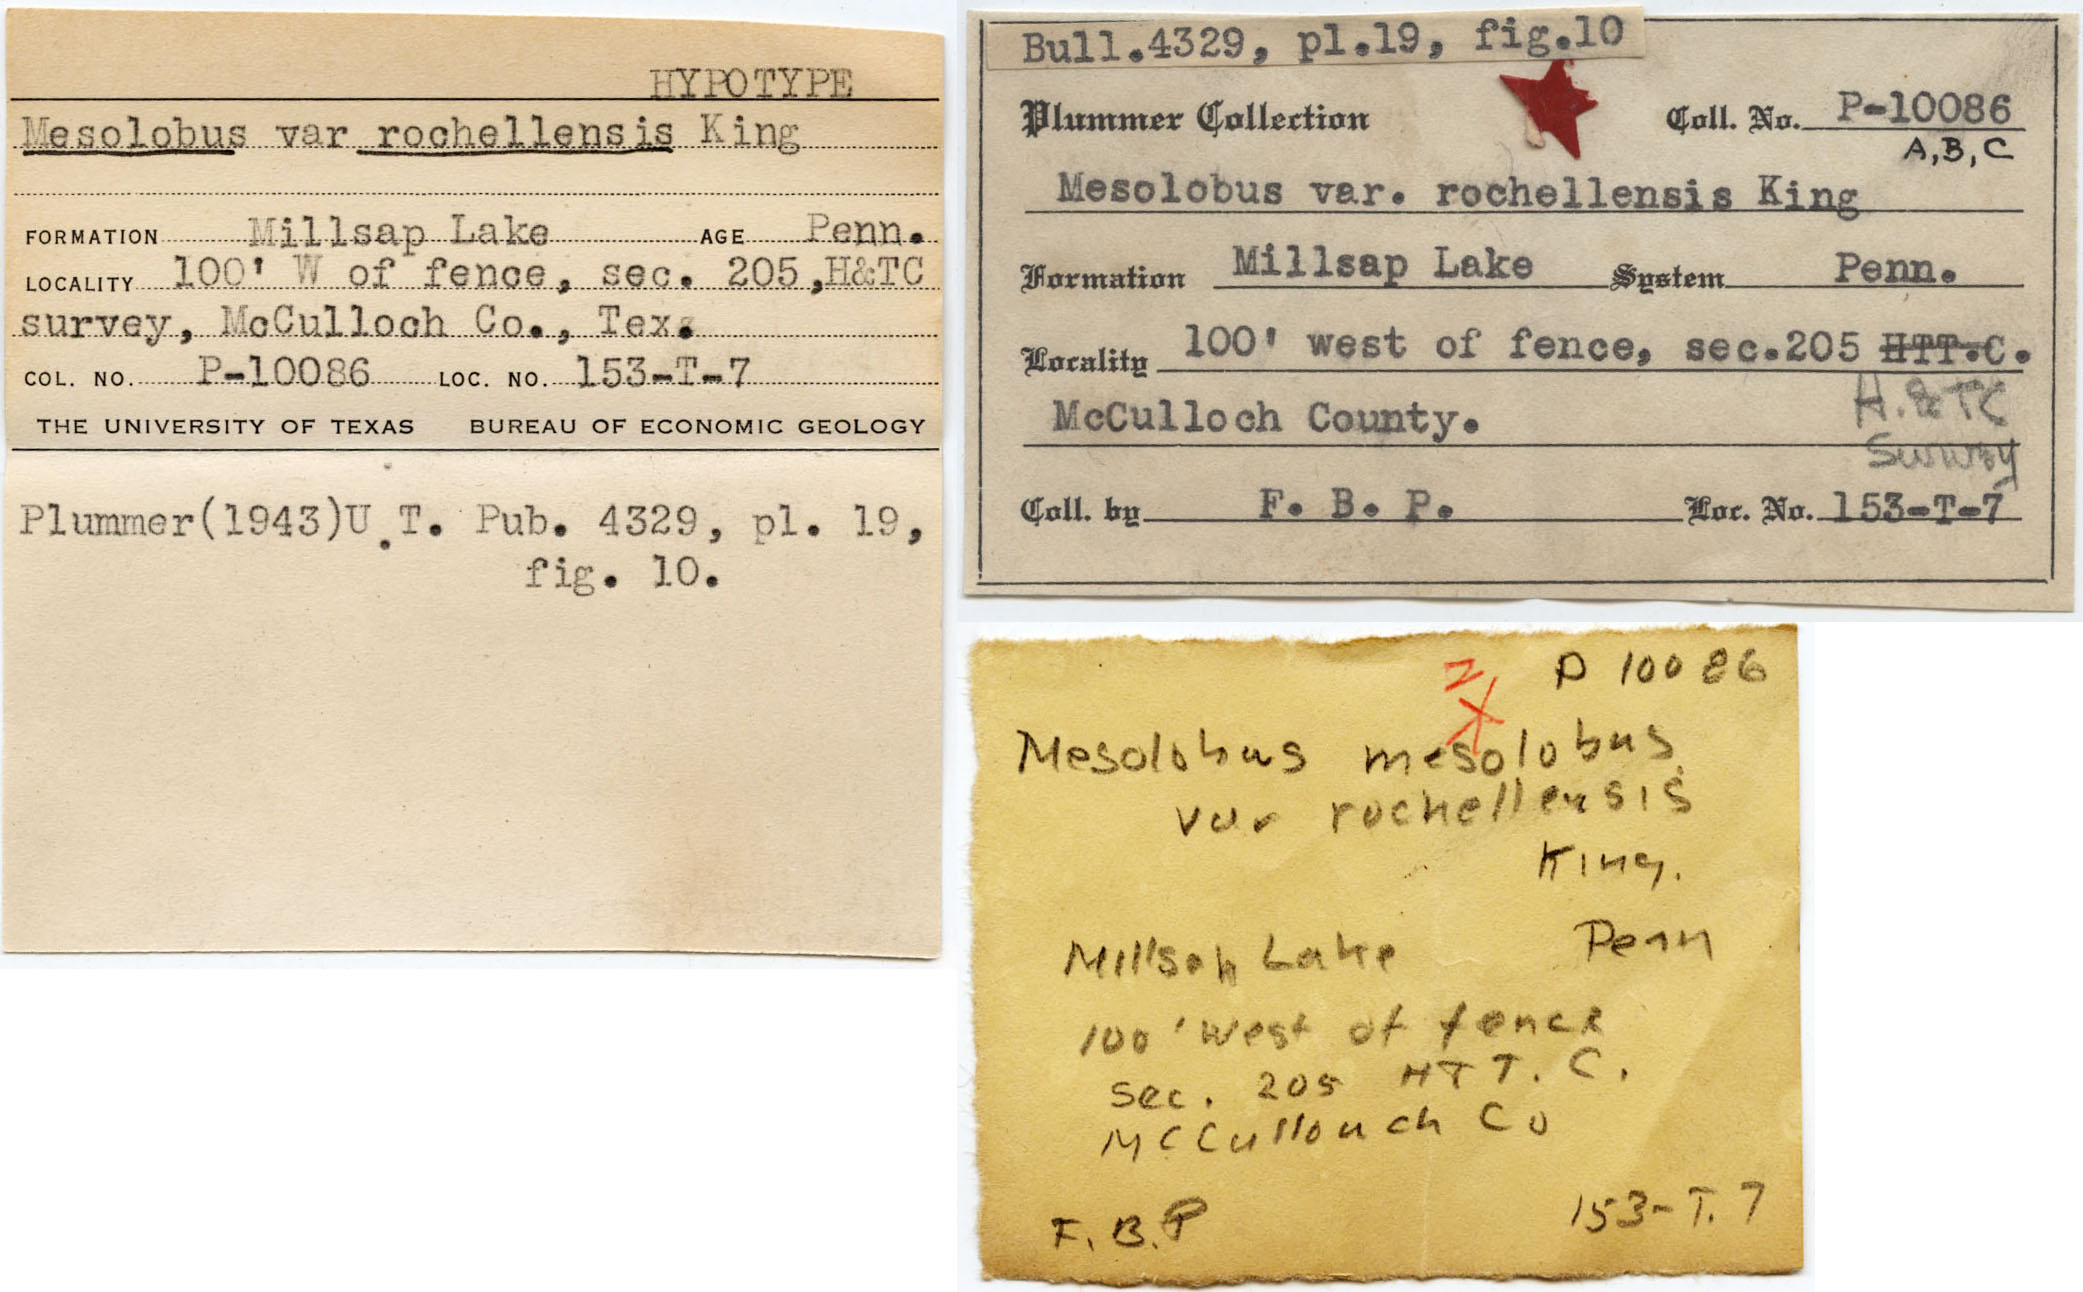 HYPOTYPE
Mesolobus var rochellensis King
FORMATION Millsap Lake AGE Penn.
LOCALITY 100' W of fence, sec. 205,H&TC
survey, McCulloch Co., Tex.
COL. NO. P-10086 LOC. NO. 153-T-7
THE UNIVERSITY OF TEXAS BUREAU OF ECONOMIC GEOLOGY
Plummer(1943)U.T. Pub. 4329, pl. 19,
fig. 10.
Bull.4329, pl.19, fig.10
Plummer Collection Coll. No. P-10086
A,B,C
Mesolobus var. rochellensis King
Formation Millsap Lake System Penn.
Locality 100' west of fence, sec.205 HTT.C.
H.&TC
McCulloch County.
Survey
Coll. by F. B. P. Loc. No. 153-T-7
P 10086
Mesolobus mesolobus
var rochellensis
King.
Millsap Lake Penn
100' West of fence
Sec. 205 HTT.C.
McCullouch Co
F.B.P 153-T.7